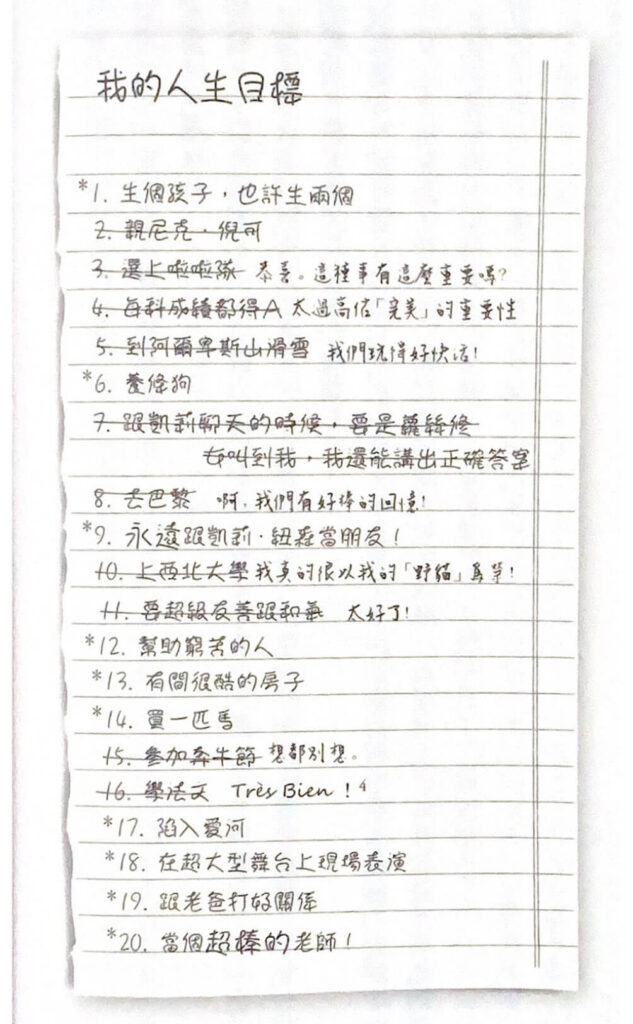 我的人生目標
*1. 生個孩子，也許生兩個
2. 親尼克·倪可
3. 選上啦啦隊 恭喜。這種事有這麼重要嗎？
4. 每科成績都得A 太過高估「完美」的重要性
5. 到阿爾卑斯山滑雪 我們玩得好快活！
*6. 養條狗
7. 跟凱莉聊天的時候，要是蘿絲修
女叫到我，我還能講出正確答案
8. 去巴黎 啊，我們有好棒的回憶！
*9. 永遠跟凱莉·紐森當朋友！
10. 上西北大學 我真的很以我的「野貓」為榮！
11. 要超級友善跟和氣 太好了！
*12. 幫助窮苦的人
*13. 有間很酷的房子
*14. 買一匹馬
15. 參加奔牛節 想都別想。
16. 學法文 Très Bien！4
*17. 陷入愛河
*18. 在超大型舞台上現場表演
*19. 跟老爸打好關係
*20. 當個超棒的老師！